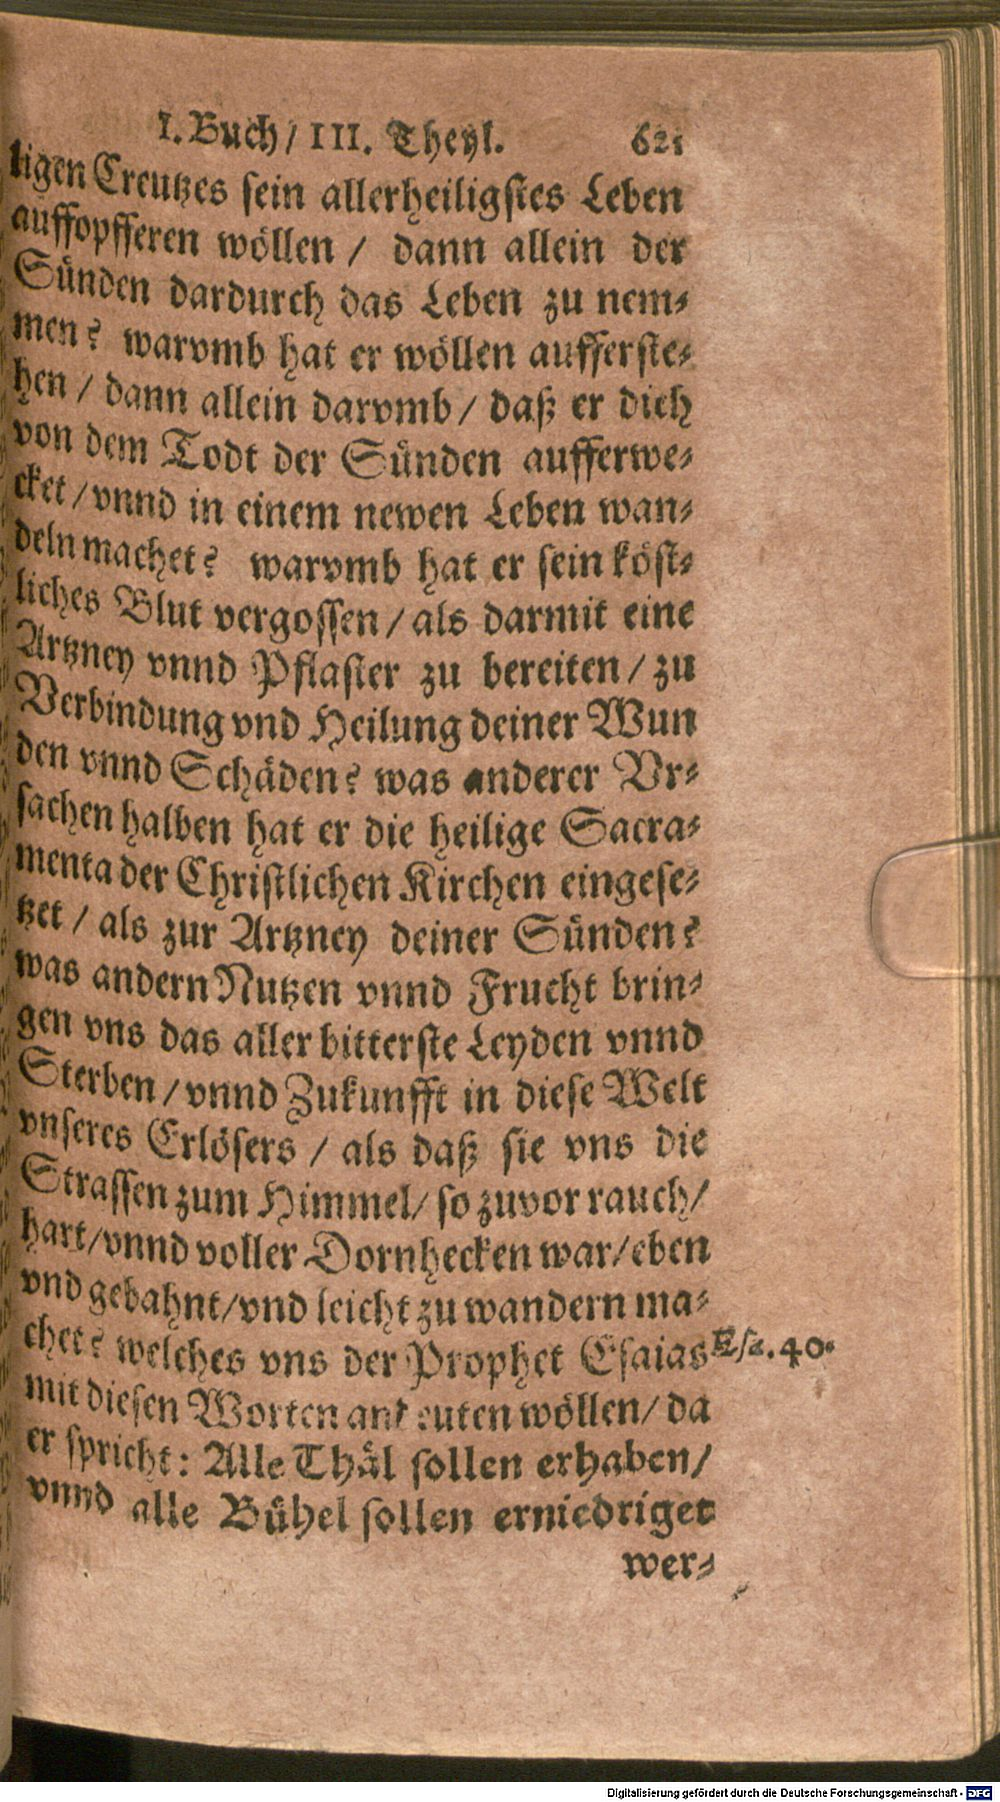 I. Buch / III. Theyl. 621
ligen Creutzes sein allerheiligstes Leben
auffopfferen wöllen / dann allein der
Sünden dardurch das Leben zu nem-
men? warvmb hat er wöllen aufferste-
hen / dann allein darvmb / daß er dich
von dem Todt der Sünden aufferwe-
cket / vnnd in einem newen Leben wan-
deln machet? warvmb hat er sein köst-
liches Blut vergossen / als darmit eine
Artzney vnnd Pflaster zu bereiten / zu
Verbindung vnd Heilung deiner Wun
den vnnd Schäden? was anderer Vr-
sachen halben hat er die heilige Sacra-
menta der Christlichen Kirchen eingese-
tzet / als zur Artzney deiner Sünden?
was andern Nutzen vnnd Frucht brin-
gen vns das aller bitterste Leyden vnnd
Sterben / vnnd Zukunfft in diese Welt
vnseres Erlösers / als daß sie vns die
Strassen zum Himmel / so zuvor rauch /
hart / vnnd voller Dornhecken war / eben
vnd gebahnt / vnd leicht zu wandern ma-
chet? welches vns der Prophet Esaias Esa. 40.
mit diesen Worten andeuten wöllen / da
er spricht: Alle Thäl sollen erhaben /
vnnd alle Bühel sollen erniedriget
wer-
Digitalisierung gefördert durch die Deutsche Forschungsgemeinschaft - DFG